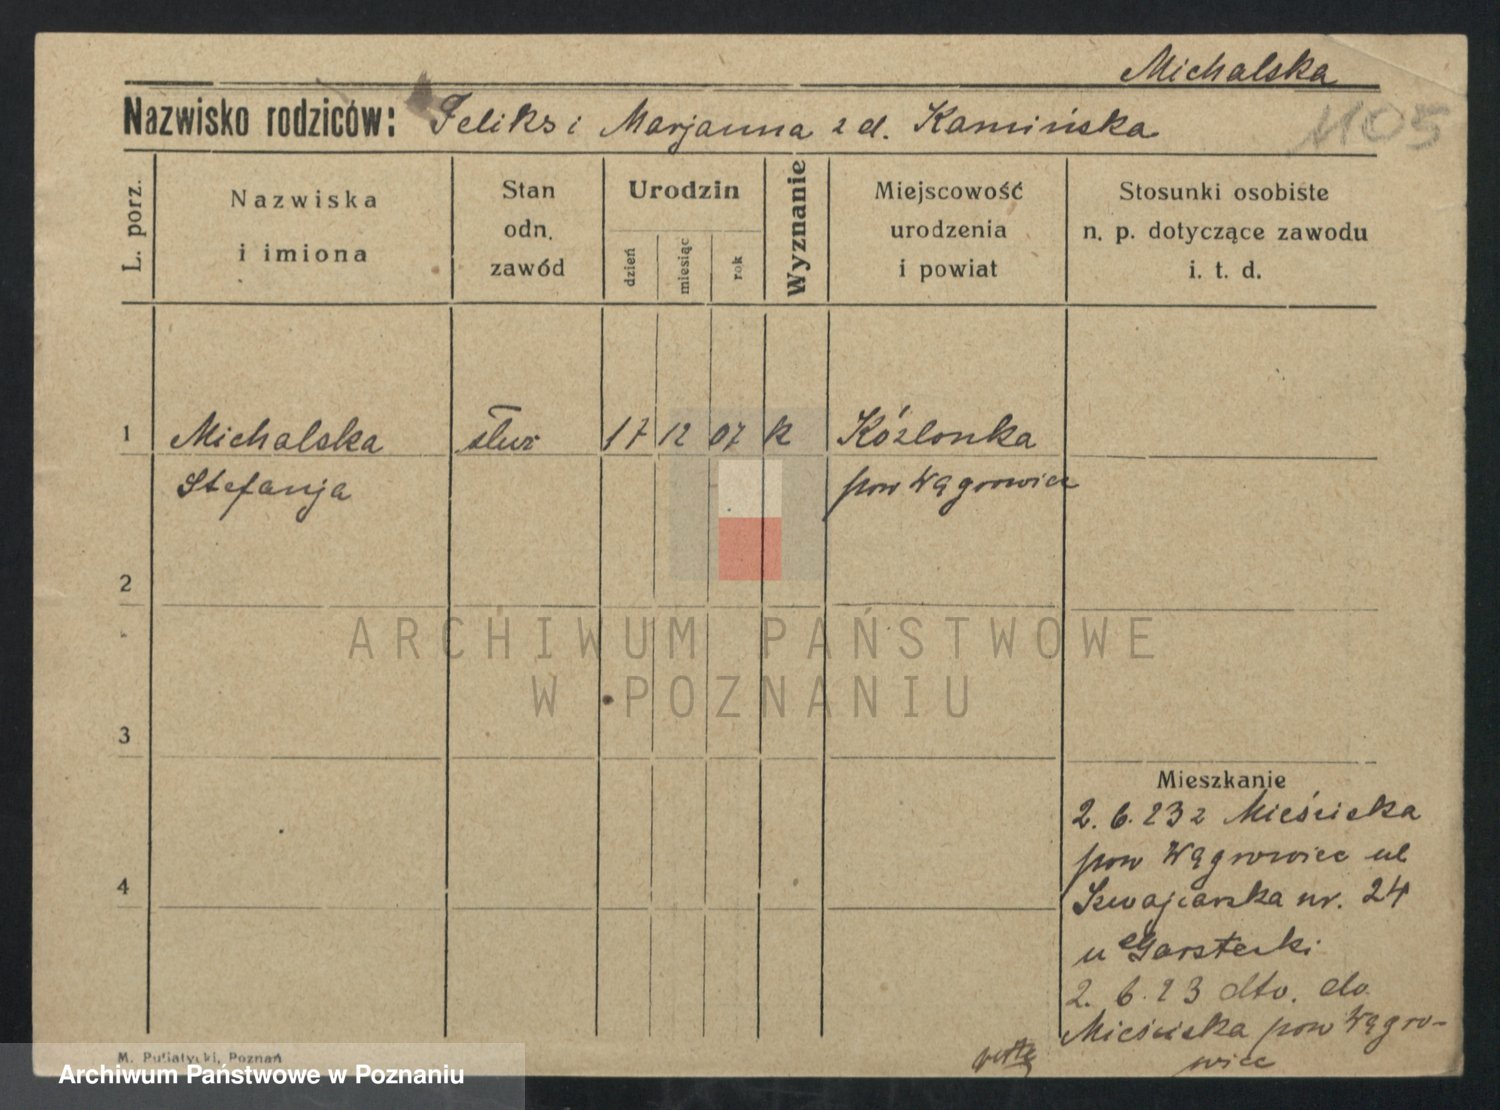 Michalska
Nazwisko rodziców: Feliks i Marjanna z d. Kamińska
1105
L. porz.
Nazwiska
i imiona
Stan
odn.
zawód
Urodzin
dzień
miesiąc
rok
Wyznanie
Miejscowość
urodzenia
i powiat
Stosunki osobiste
n. p. dotyczące zawodu
i. t. d.
1 Michalska służ 17 12 07 k Kózlonka
Stefanja pow Wągrowiec
2
ARCHIWUM PAŃSTWOWE
W POZNANIU
3
Mieszkanie
2. 6. 23 z Mieściska
pow Wągrowiec ul
Szwajcarska nr. 24
u Garstecki
4
2. 6. 23 dto. do
Mieściska pow Wągro-
wiec
M. Putiatycki, Poznań
Archiwum Państwowe w Poznaniu